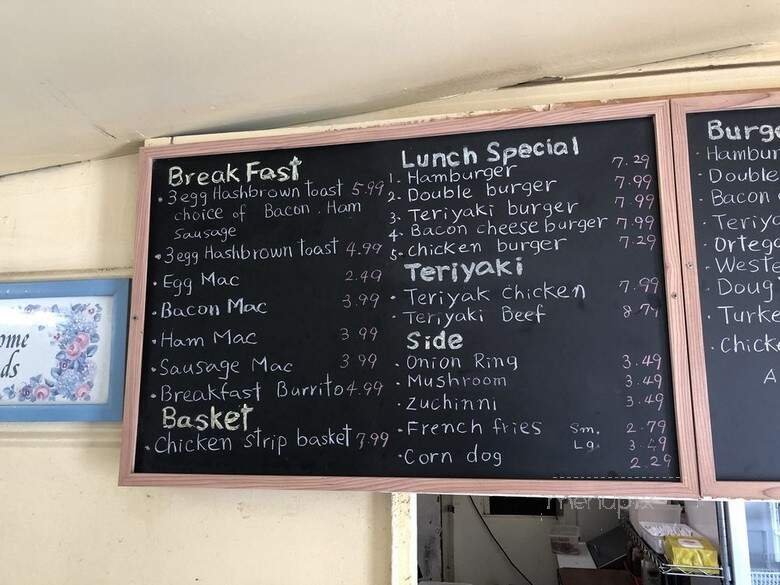 Break Fast
• 3 egg Hashbrown toast 5.99
choice of Bacon. Ham
Sausage
• 3 egg Hashbrown toast 4.99
• Egg Mac 2.49
• Bacon Mac 3.99
• Ham Mac 3.99
• Sausage Mac 3.99
• Breakfast Burrito 4.99
Basket
• Chicken strip basket 7.99
Lunch Special
1. Hamburger 7.29
2. Double burger 7.99
3. Teriyaki burger 7.99
4. Bacon cheese burger 7.99
5. chicken burger 7.29
Teriyaki
• Teriyak chicken 7.99
• Teriyaki Beef 8.79
Side
• Onion Ring 3.49
• Mushroom 3.49
• Zuchinni 3.49
• French fries Sm. 2.79
Lg. 3.49
• Corn dog 2.29
Burge
• Hambur
• Double
• Bacon
• Teriya
• Ortega
• Weste
• Doug
• Turke
• Chick
A
ome
ds